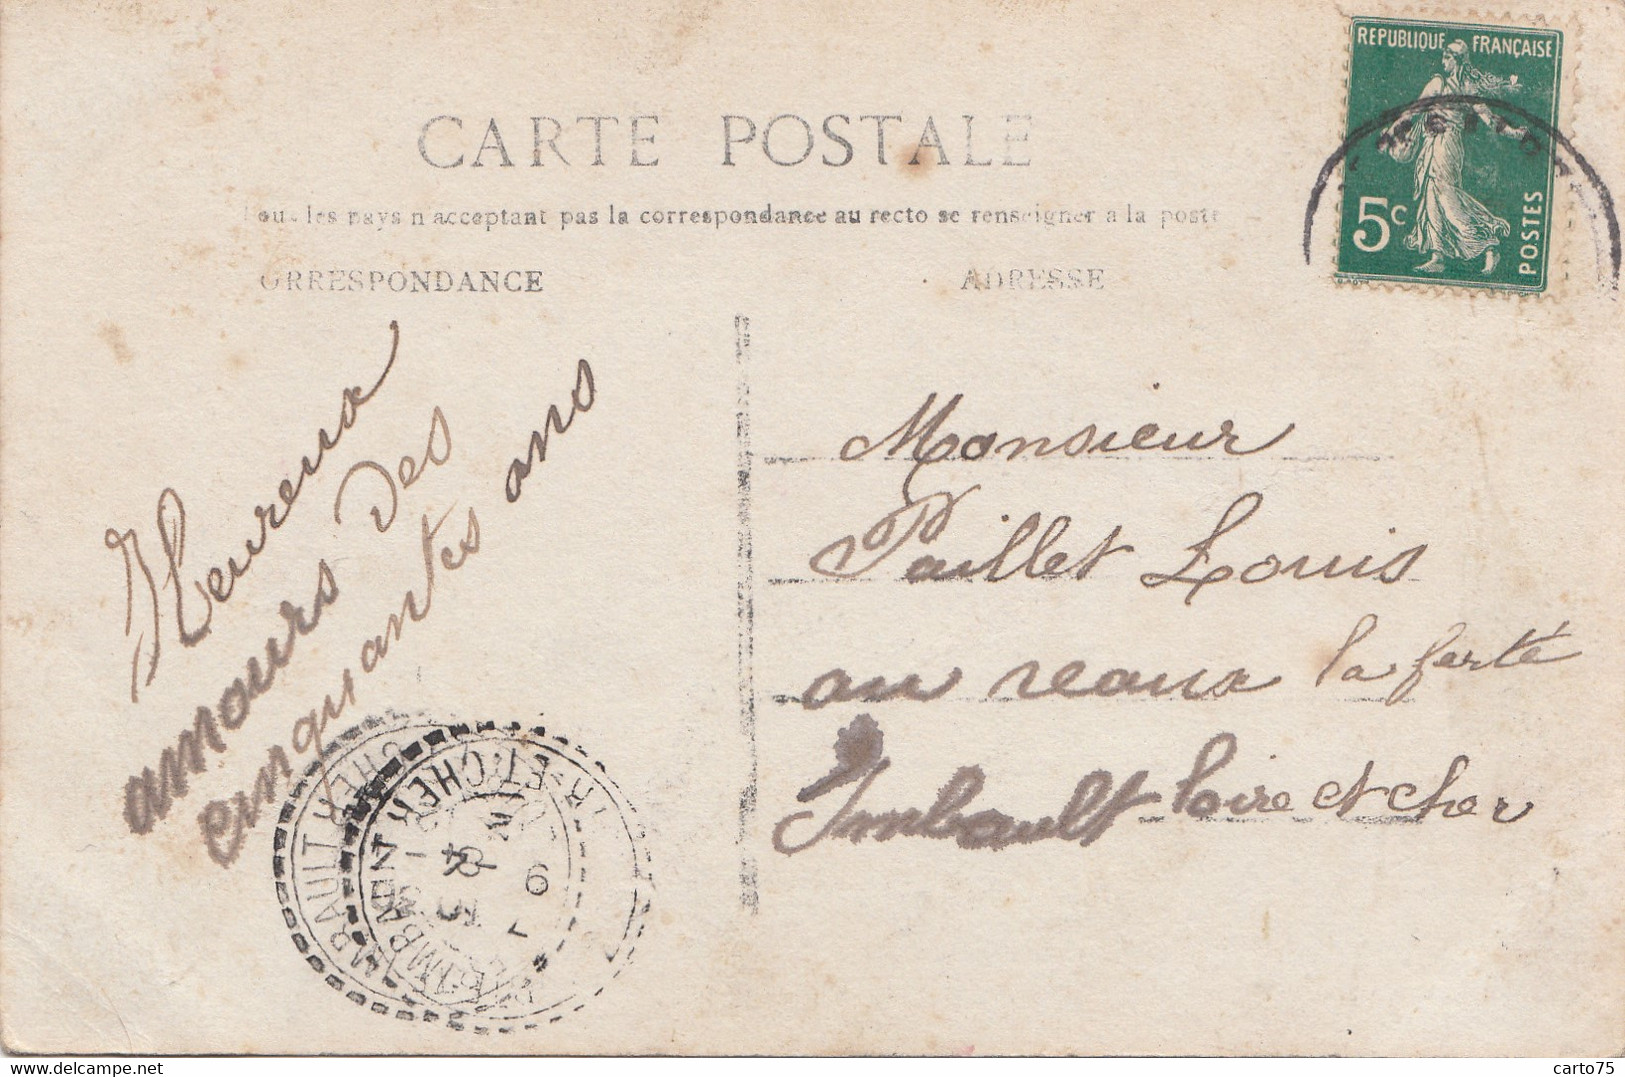 REPUBLIQUE FRANÇAISE
5c
POSTES
CARTE POSTALE
les pays n acceptant pas la correspondance au recto se renseigner a la poste
ORRESPONDANCE
ADRESSE
Heureux
amours des
cinquantes ans
Monsieur
Paillet Louis
au reaux la ferté
Imbault loire et cher
ET CHER
delcampe.net
carto75